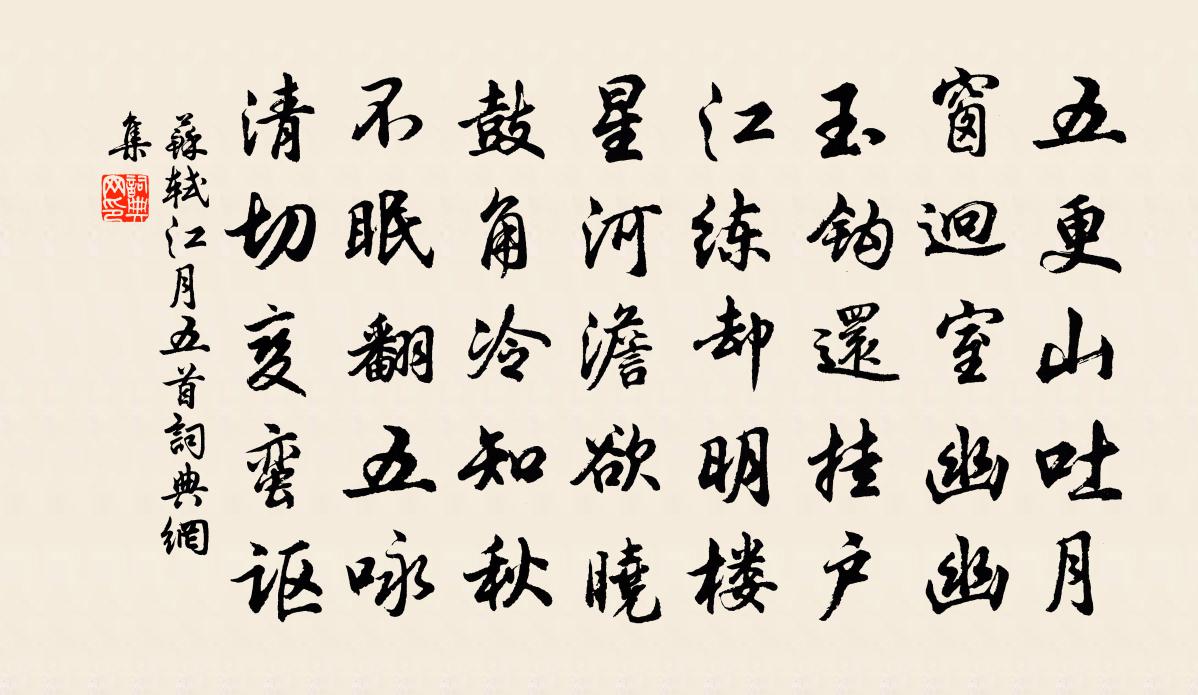 五更山吐月
窗迥室幽幽
玉钩還挂户
江练却明楼
星河澹欲曉
鼓角冷知秋
不眠翻五咏
清切变蛮讴
蘇軾江月五首詞典網
集
詞典
网印